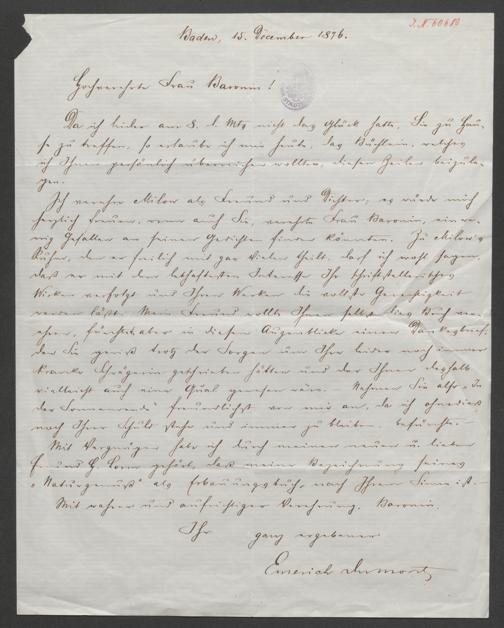 J.N. 60680
Baden, 15. December 1876.
Hochverehrte Frau Baronin!
Da ich leider am 8. d. Mts nicht das Glück hatte, Sie zu Hau-
se zu treffen, so erlaube ich mir heute, das Büchlein, welches
ich Ihnen persönlich überreichen wollte, diesen Zeilen beizule-
gen.
Ich verehre Milow als Freund und Dichter; es würde mich
herzlich freuen, wenn auch Sie, verehrte Frau Baronin, ein we-
nig Gefallen an seinen Gedichten finden könnten. Zu Milow's
Ruhm, den er freilich mit gar Vielen theilt, darf ich wohl sagen,
daß er mit dem lebhaftesten Interesse Ihr schriftstellerisches
Wirken verfolgt und Ihren Werken die vollste Gerechtigkeit
werden läßt. Mein Freund wollte Ihnen selbst dies Buch
, fürchtet aber in diesem Augenblicke einen Dankesbrief,
den Sie gewiß trotz der Sorgen um Ihre leider noch immer
kranke geschrieben hätten und der Ihnen deshalb
vielleicht auch eine Qual gewesen wäre. Nehmen Sie also „In
der Sonnenwende" freundlichst von mir an, da ich ohnedies
noch Ihr Schuldner und immer zu bleiben befürchte.
Mit Vergnügen habe ich durch meinen neuen u. lieben
Freund H. Lorm gehört, daß meine Bezeichnung seines
„Naturgenuß" als Erbauungsbuch, nach Ihrem Sinne ist.
Mit wahrer und aufrichtiger Verehrung, Baronin,
Ihr ganz ergebener
Emerich Dumont